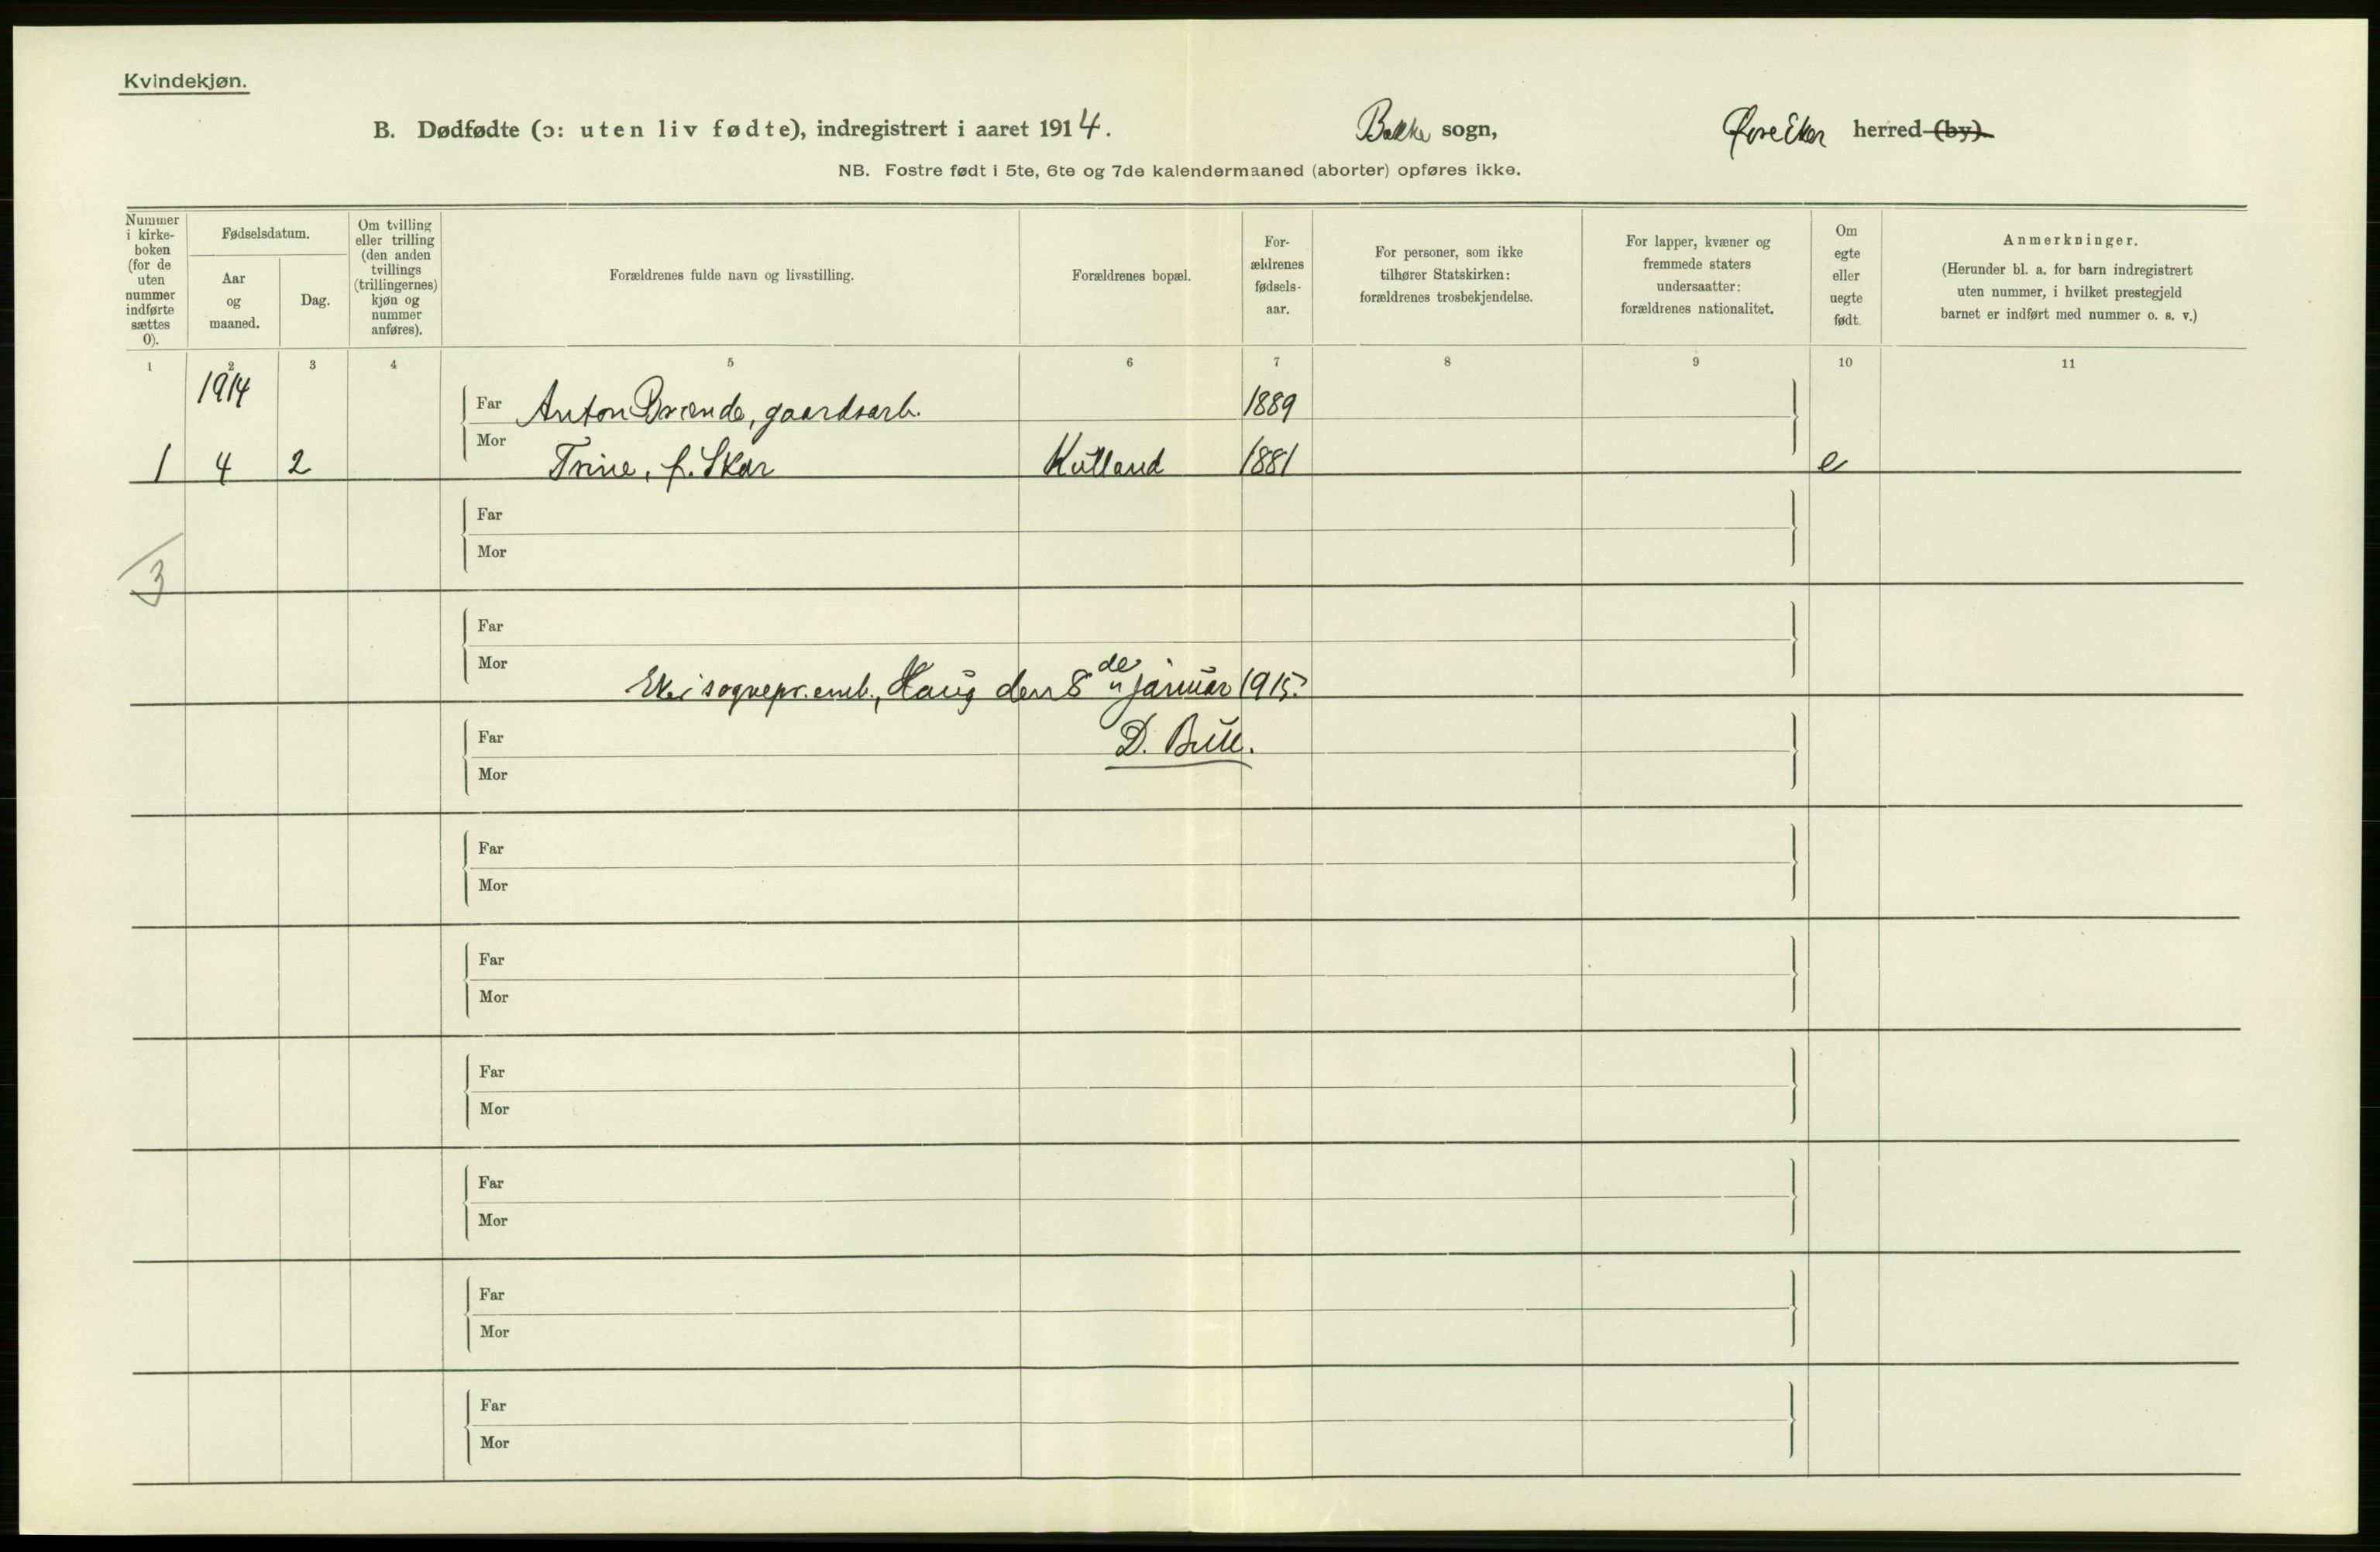 Kvindekjøn.
B. Dødfødte (ɔ: uten liv fødte), indregistrert i aaret 1914. Bakke sogn, Øvre Eker herred (by).
NB. Fostre født i 5te, 6te og 7de kalendermaaned (aborter) opføres ikke.
Nummer i kirke-boken (for de uten nummer indførte sættes 0).
Fødselsdatum.
Aar og maaned.
Dag.
Om tvilling eller trilling (den anden tvillings (trillingernes) kjøn og nummer anføres).
Forældrenes fulde navn og livsstilling.
Forældrenes bopæl.
For-ældrenes fødsels-aar.
For personer, som ikke tilhører Statskirken: forældrenes trosbekjendelse.
For lapper, kvæner og fremmede staters undersaatter: forældrenes nationalitet.
Om egte eller uegte født.
Anmerkninger.
(Herunder bl. a. for barn indregistrert uten nummer, i hvilket prestegjeld barnet er indført med nummer o. s. v.)
1 2 3 4 5 6 7 8 9 10 11
1914
Far Anton Brænde, gaardsarb. 1889
Mor
1 4 2 Trine, f. Skar Kutland 1881 e
Far
Mor
3
Far
Mor
Eker sognepr.emb., Haug den 8de januar 1915.
Far D. Bull.
Mor
Far
Mor
Far
Mor
Far
Mor
Far
Mor
Far
Mor
Far
Mor